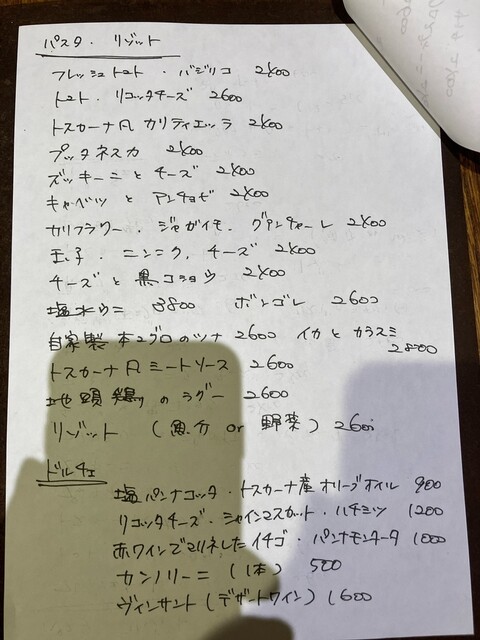 パスタ・リゾット
フレッシュトマト・バジリコ 2400
トマト・リコッタチーズ 2600
トスカーナ風カリティエッラ 2400
プッタネスカ 2400
ズッキーニとチーズ 2400
キャベツとアンチョビ 2400
カリフラワー・ジャガイモ・グアンチャーレ 2400
玉子・ニンニク・チーズ 2400
チーズと黒コショウ 2400
塩水ウニ 3800 ボンゴレ 2600
自家製本マグロのツナ 2600 イカとカラスミ 2800
トスカーナ風ミートソース 2600
地頭鶏のラグー 2600
リゾット (魚介 or 野菜) 2600
ドルチェ
塩パンナコッタ・トスカーナ産オリーブオイル 900
リコッタチーズ・シャインマスカット・ハチミツ 1200
赤ワインでマリネしたイチゴ・パンナモンタータ 1000
カンノリーニ (1本) 500
ヴィンサント (デザートワイン) 1600